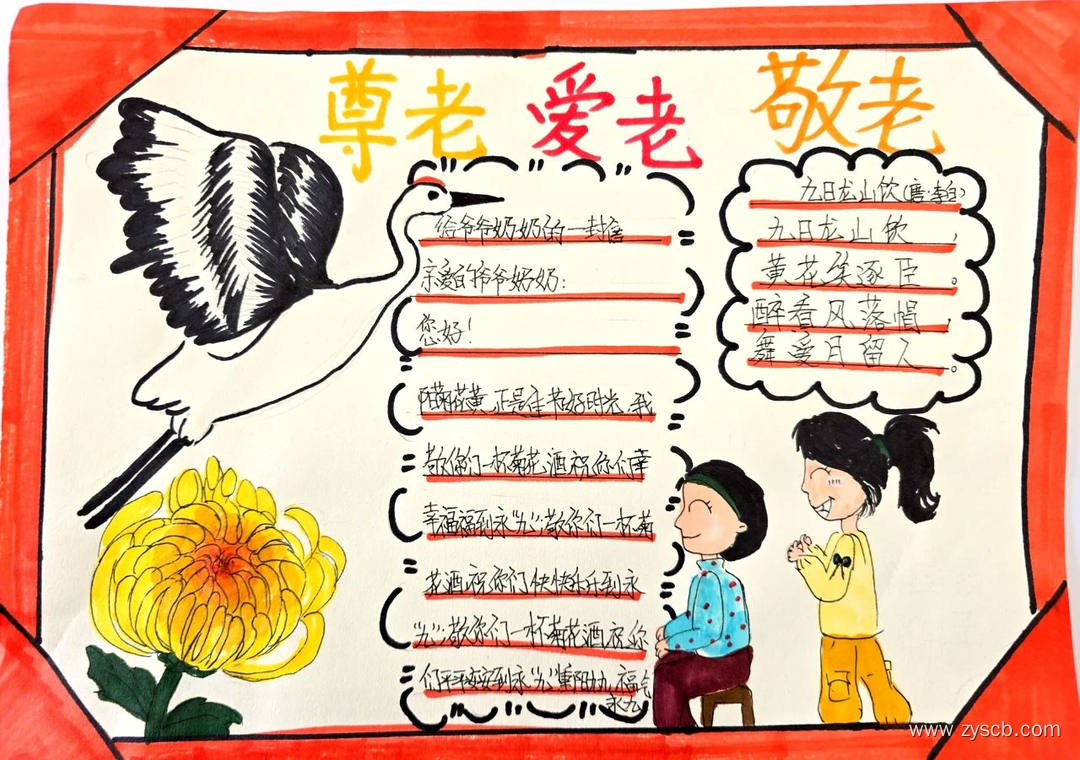 尊老 爱老 敬老
给爷爷奶奶的一封信
亲爱的爷爷奶奶:
您好!
菊花黄,正是佳节好时光,我
敬你们一杯菊花酒,祝你们幸
幸福福到永"九";敬你们一杯菊
花酒,祝你们快快乐乐到永
"九";敬你们一杯菊花酒,祝你
们平平安安到永"九"重阳九九,福
永九
九日龙山饮(唐·李白)
九日龙山饮,
黄花笑逐臣。
醉看风落帽,
舞爱月留人。
www.zyscb.com